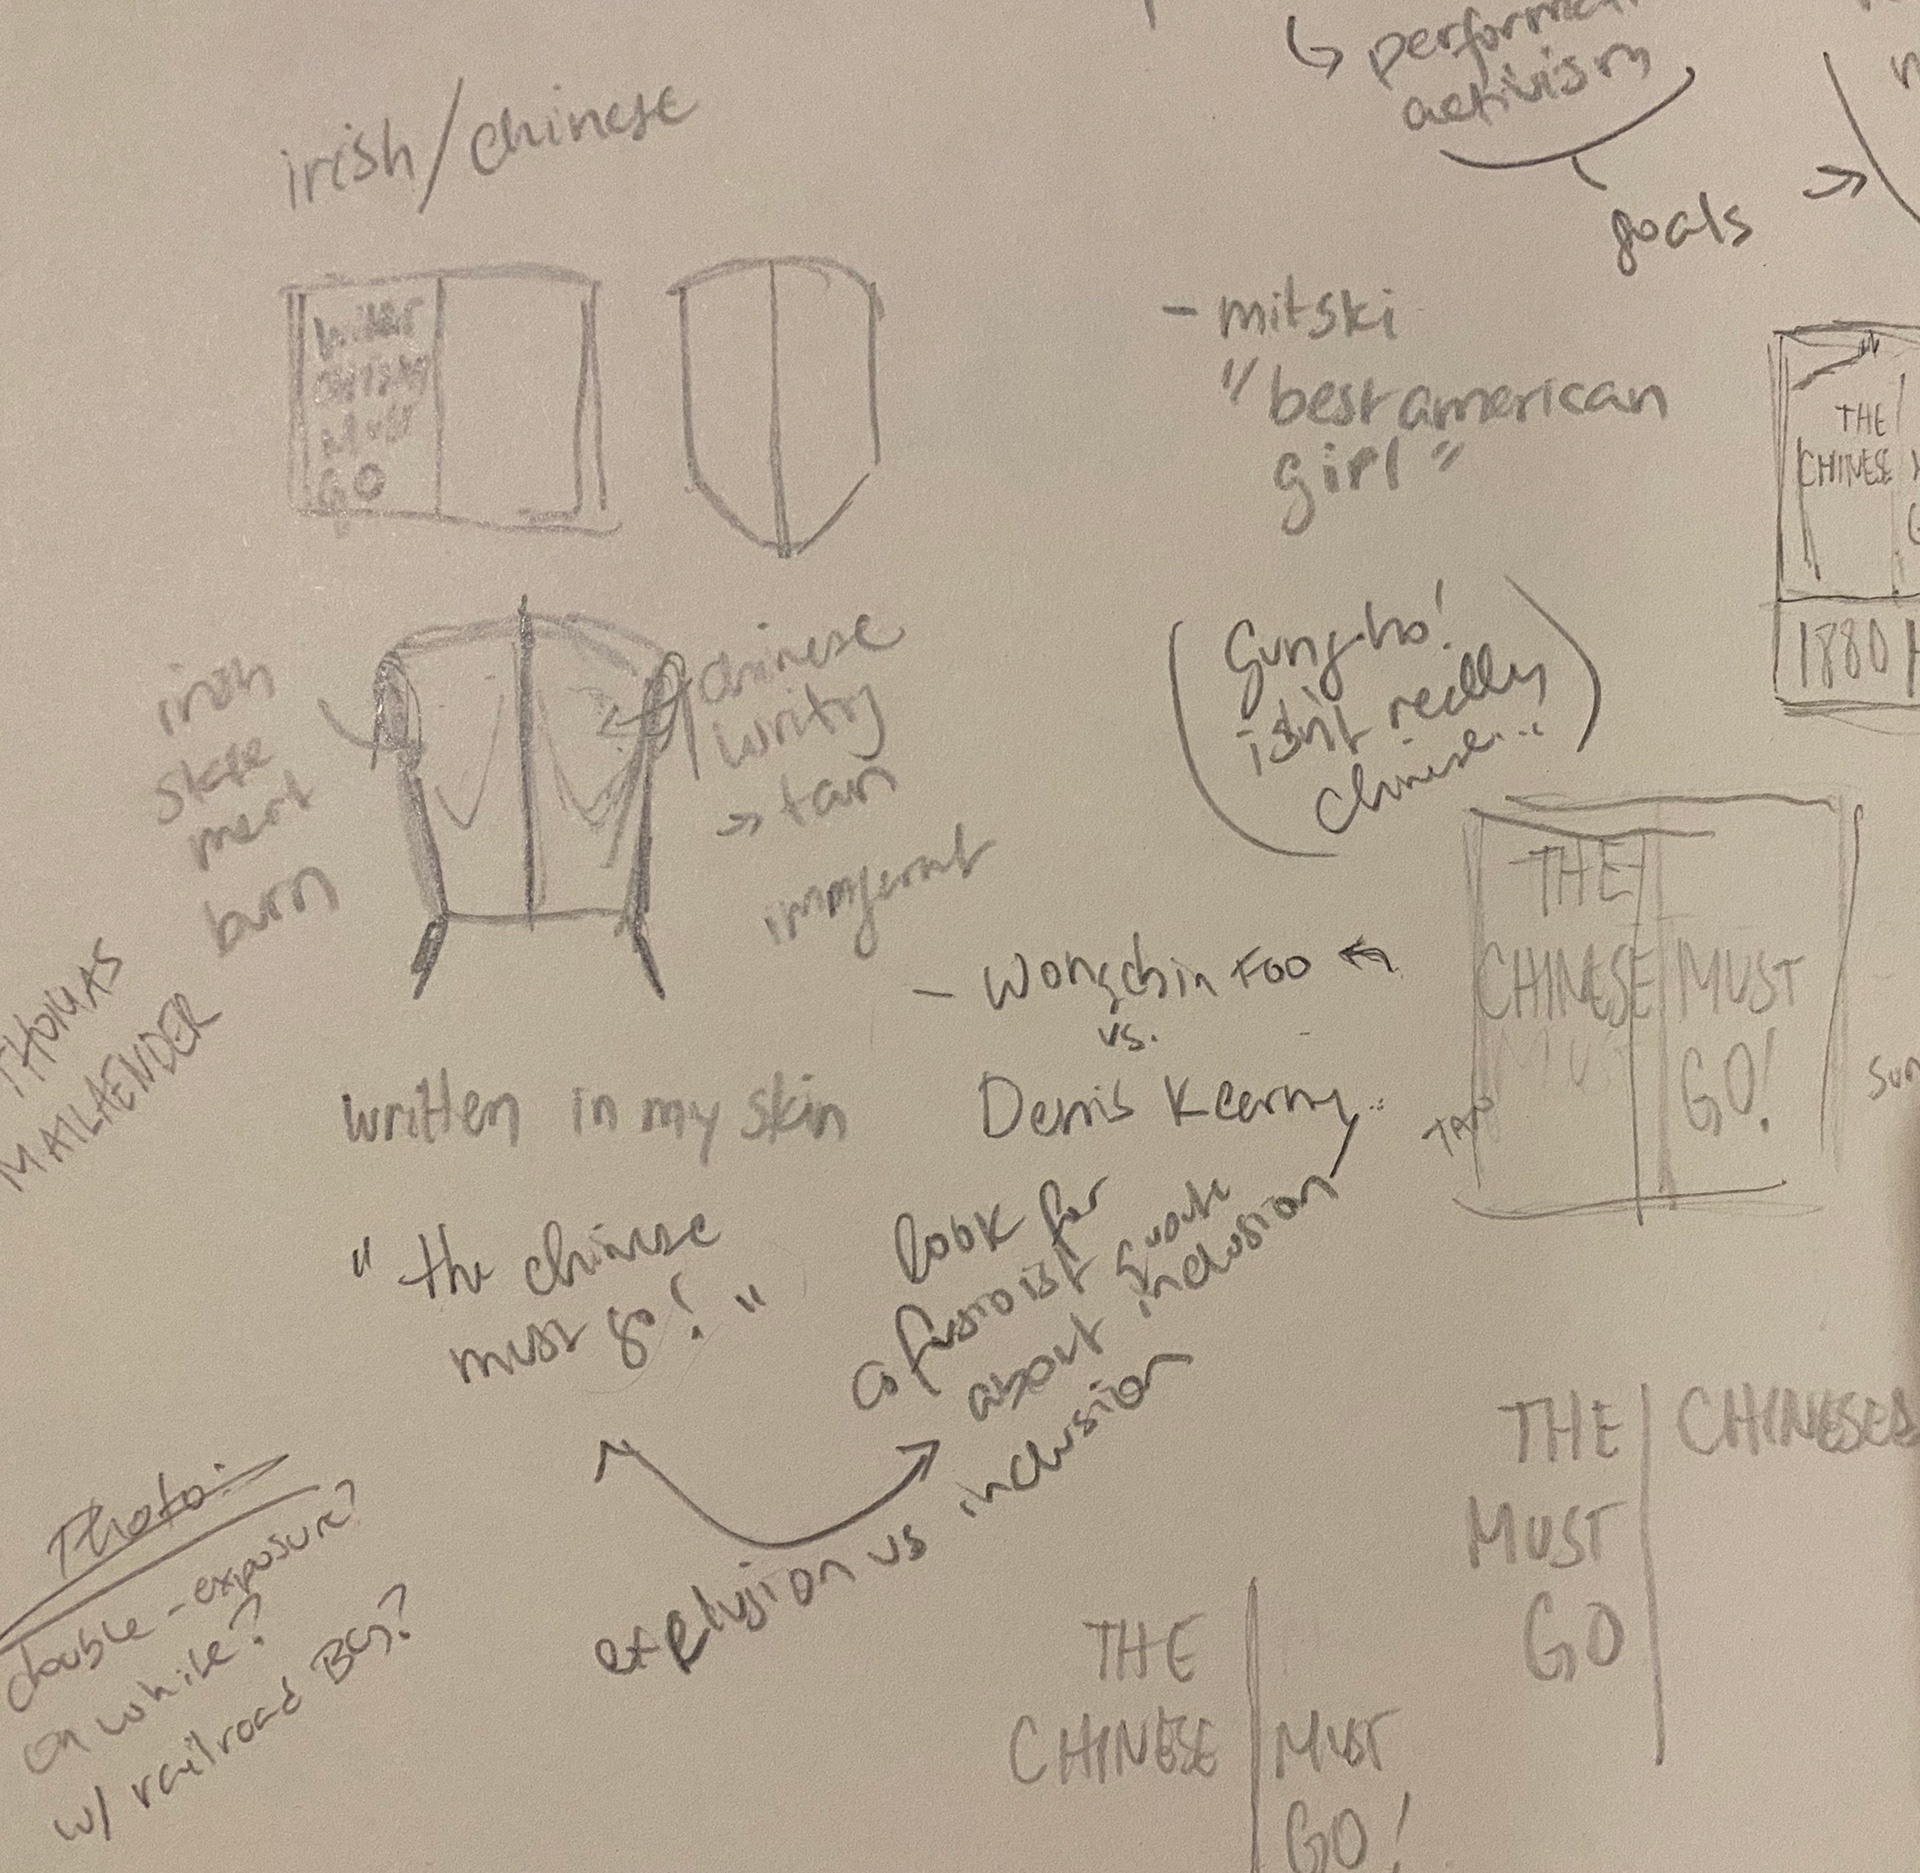 activism
goals
irish/chinese
MUST
GO
- mitski
"best american
girl"
THE
CHINESE
1880
(Gung-ho!
isn't really
chinese...)
irish
state
ment
burn
chinese
writing
→ tan
THE
CHINESE MUST
MUST
GO!
- Wong Chin Foo ←
vs.
Denis Kearny..
THOMAS
MAILAENDER
written in my skin
"the chinese
must go!"
look for
quote
about inclusion
exclusion vs inclusion
THE | CHINESE
MUST
GO
Photo:
double-exposure?
on white?
w/ railroad BG?
THE
CHINESE | MUST
GO!